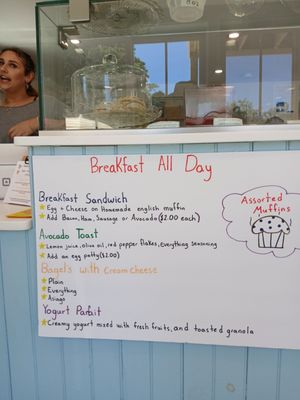 Breakfast All Day
Breakfast Sandwich
Egg & Cheese on Homemade english muffin
Add Bacon, Ham, Sausage or Avocado ($2.00 each)
Avocado Toast
Lemon juice, olive oil, red pepper flakes, Everything seasoning
Add an egg patty ($2.00)
Bagels with Cream cheese
Plain
Everything
Asiago
Yogurt Parfait
Creamy yogurt mixed with fresh fruits, and toasted granola
Assorted
Muffins